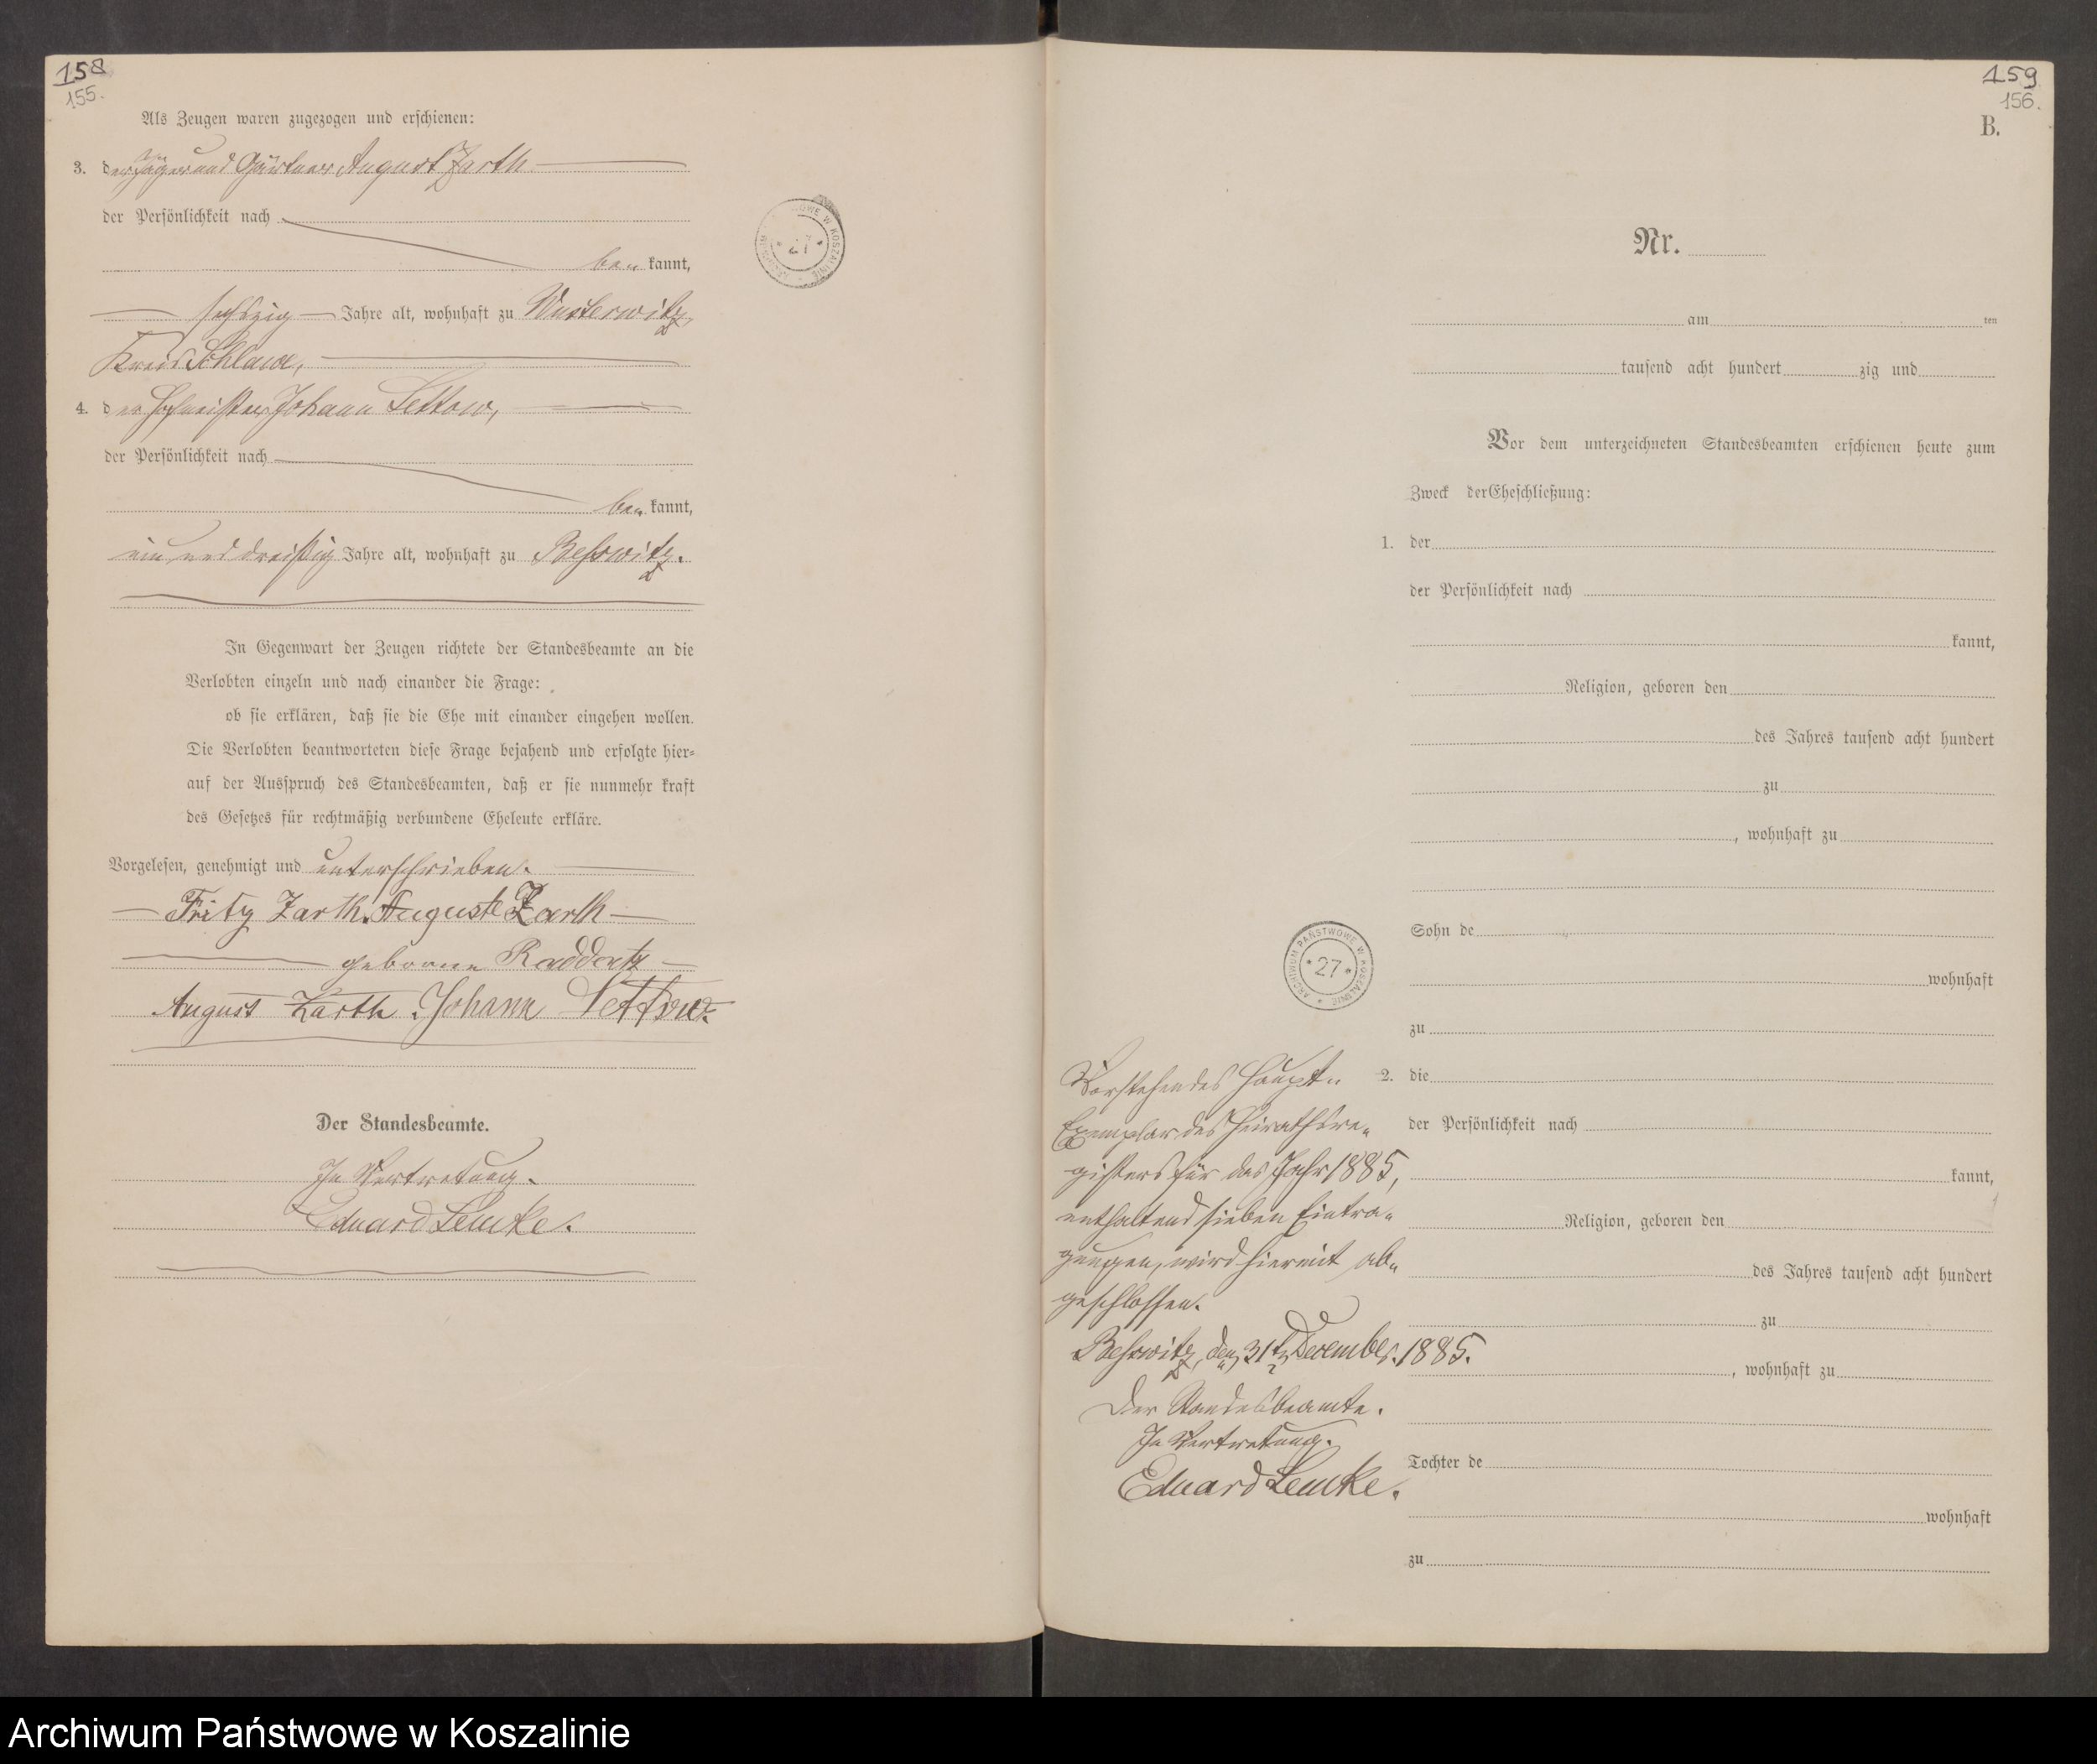 158
155.
Als Zeugen waren zugezogen und erschienen:
3. der Jäger und Gärtner August Zarth
der Persönlichkeit nach
be kannt,
sechszig Jahre alt, wohnhaft zu Wusterwitz,
Kreis Schlawe,
4. der Hofmeister Johann Lettow,
der Persönlichkeit nach
be kannt,
ein und dreißig Jahre alt, wohnhaft zu Beßwitz.
In Gegenwart der Zeugen richtete der Standesbeamte an die
Verlobten einzeln und nach einander die Frage:
ob sie erklären, daß sie die Ehe mit einander eingehen wollen.
Die Verlobten beantworteten diese Frage bejahend und erfolgte hier-
auf der Ausspruch des Standesbeamten, daß er sie nunmehr kraft
des Gesetzes für rechtmäßig verbundene Eheleute erkläre.
Vorgelesen, genehmigt und unterschrieben.
Fritz Zarth. Auguste Zarth
geborne Raddatz
August Zarth. Johann Lettow.
Der Standesbeamte.
In Vertretung.
Eduard Lemke.
27
159
156.
B.
Nr.
am ten
tausend acht hundert zig und
Vor dem unterzeichneten Standesbeamten erschienen heute zum
Zweck der Eheschließung:
1. der
der Persönlichkeit nach
kannt,
Religion, geboren den
des Jahres tausend acht hundert
zu
, wohnhaft zu
Sohn de
wohnhaft
zu
2. die
der Persönlichkeit nach
kannt,
Religion, geboren den
des Jahres tausend acht hundert
zu
, wohnhaft zu
Tochter de
wohnhaft
zu
ARCHIWUM PAŃSTWOWE W KOSZALINIE
* 27 *
Vorstehendes Haupt-
Exemplar des Heirathsre-
gisters für das Jahr 1885,
enthaltend sieben Eintra-
gungen, wird hiermit ab-
geschlossen.
Beßwitz, den 31ten December 1885.
Der Standesbeamte.
In Vertretung.
Eduard Lemke.
Archiwum Państwowe w Koszalinie